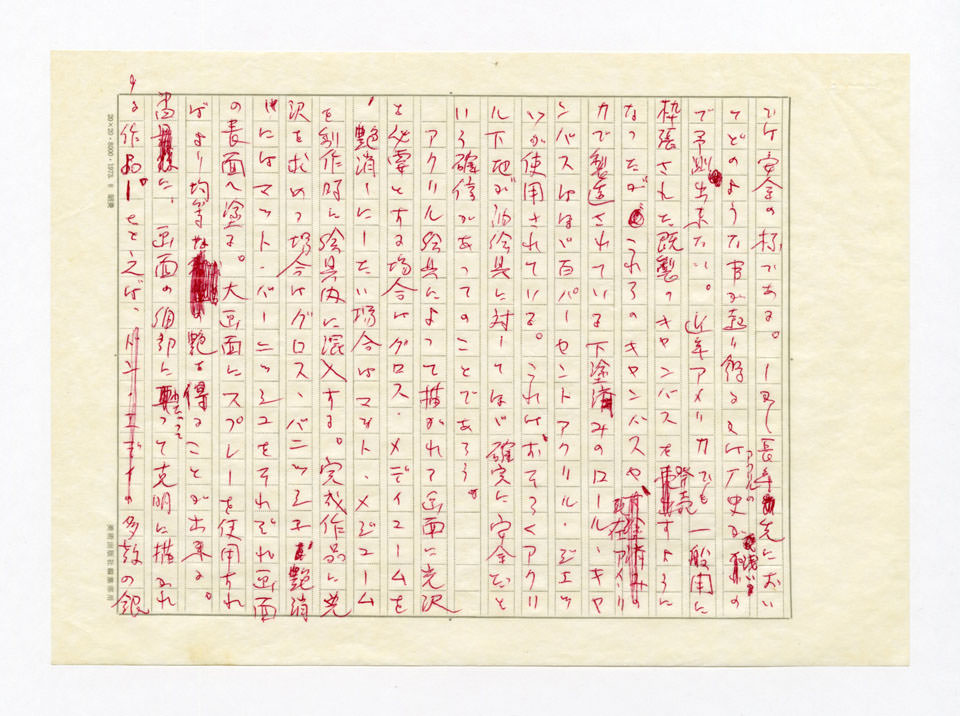 では安全の様である。しかし長年先におい
てどのような事が起り得るかはアクリルの歴史が浅いの
で予測出来ない。近年アメリカでも一般用に
枠張された既製のキャンバスを発売するように
なったが、これらのキャンバスや、現在アメリ
カで製造されている下塗済みのロール・キャ
ンバスはほぼ百パーセントアクリル・ジェッ
ソが使用されている。これはおそらくアクリ
ル下地が油絵具に対してほぼ確実に安全だと
いう確信があってのことであろう。
アクリル絵具によって描かれて画面に光沢
を必要とする場合はグロス・メディュームを
、艶消しにしたい場合はマット・メジューム
を制作時に絵具内に混入する。完成作品に光
沢を求める場合はグロス・バニッシュ、艶消
しにはマット・バーニッシュをそれぞれ画面
の表面へ塗る。大画面にスプレーを使用すれ
ばより均等な艶を得ることが出来る。
画面の細部に亘って克明に描かれ
る作品、たとえば、ドン・エディの多数の銀
20×20